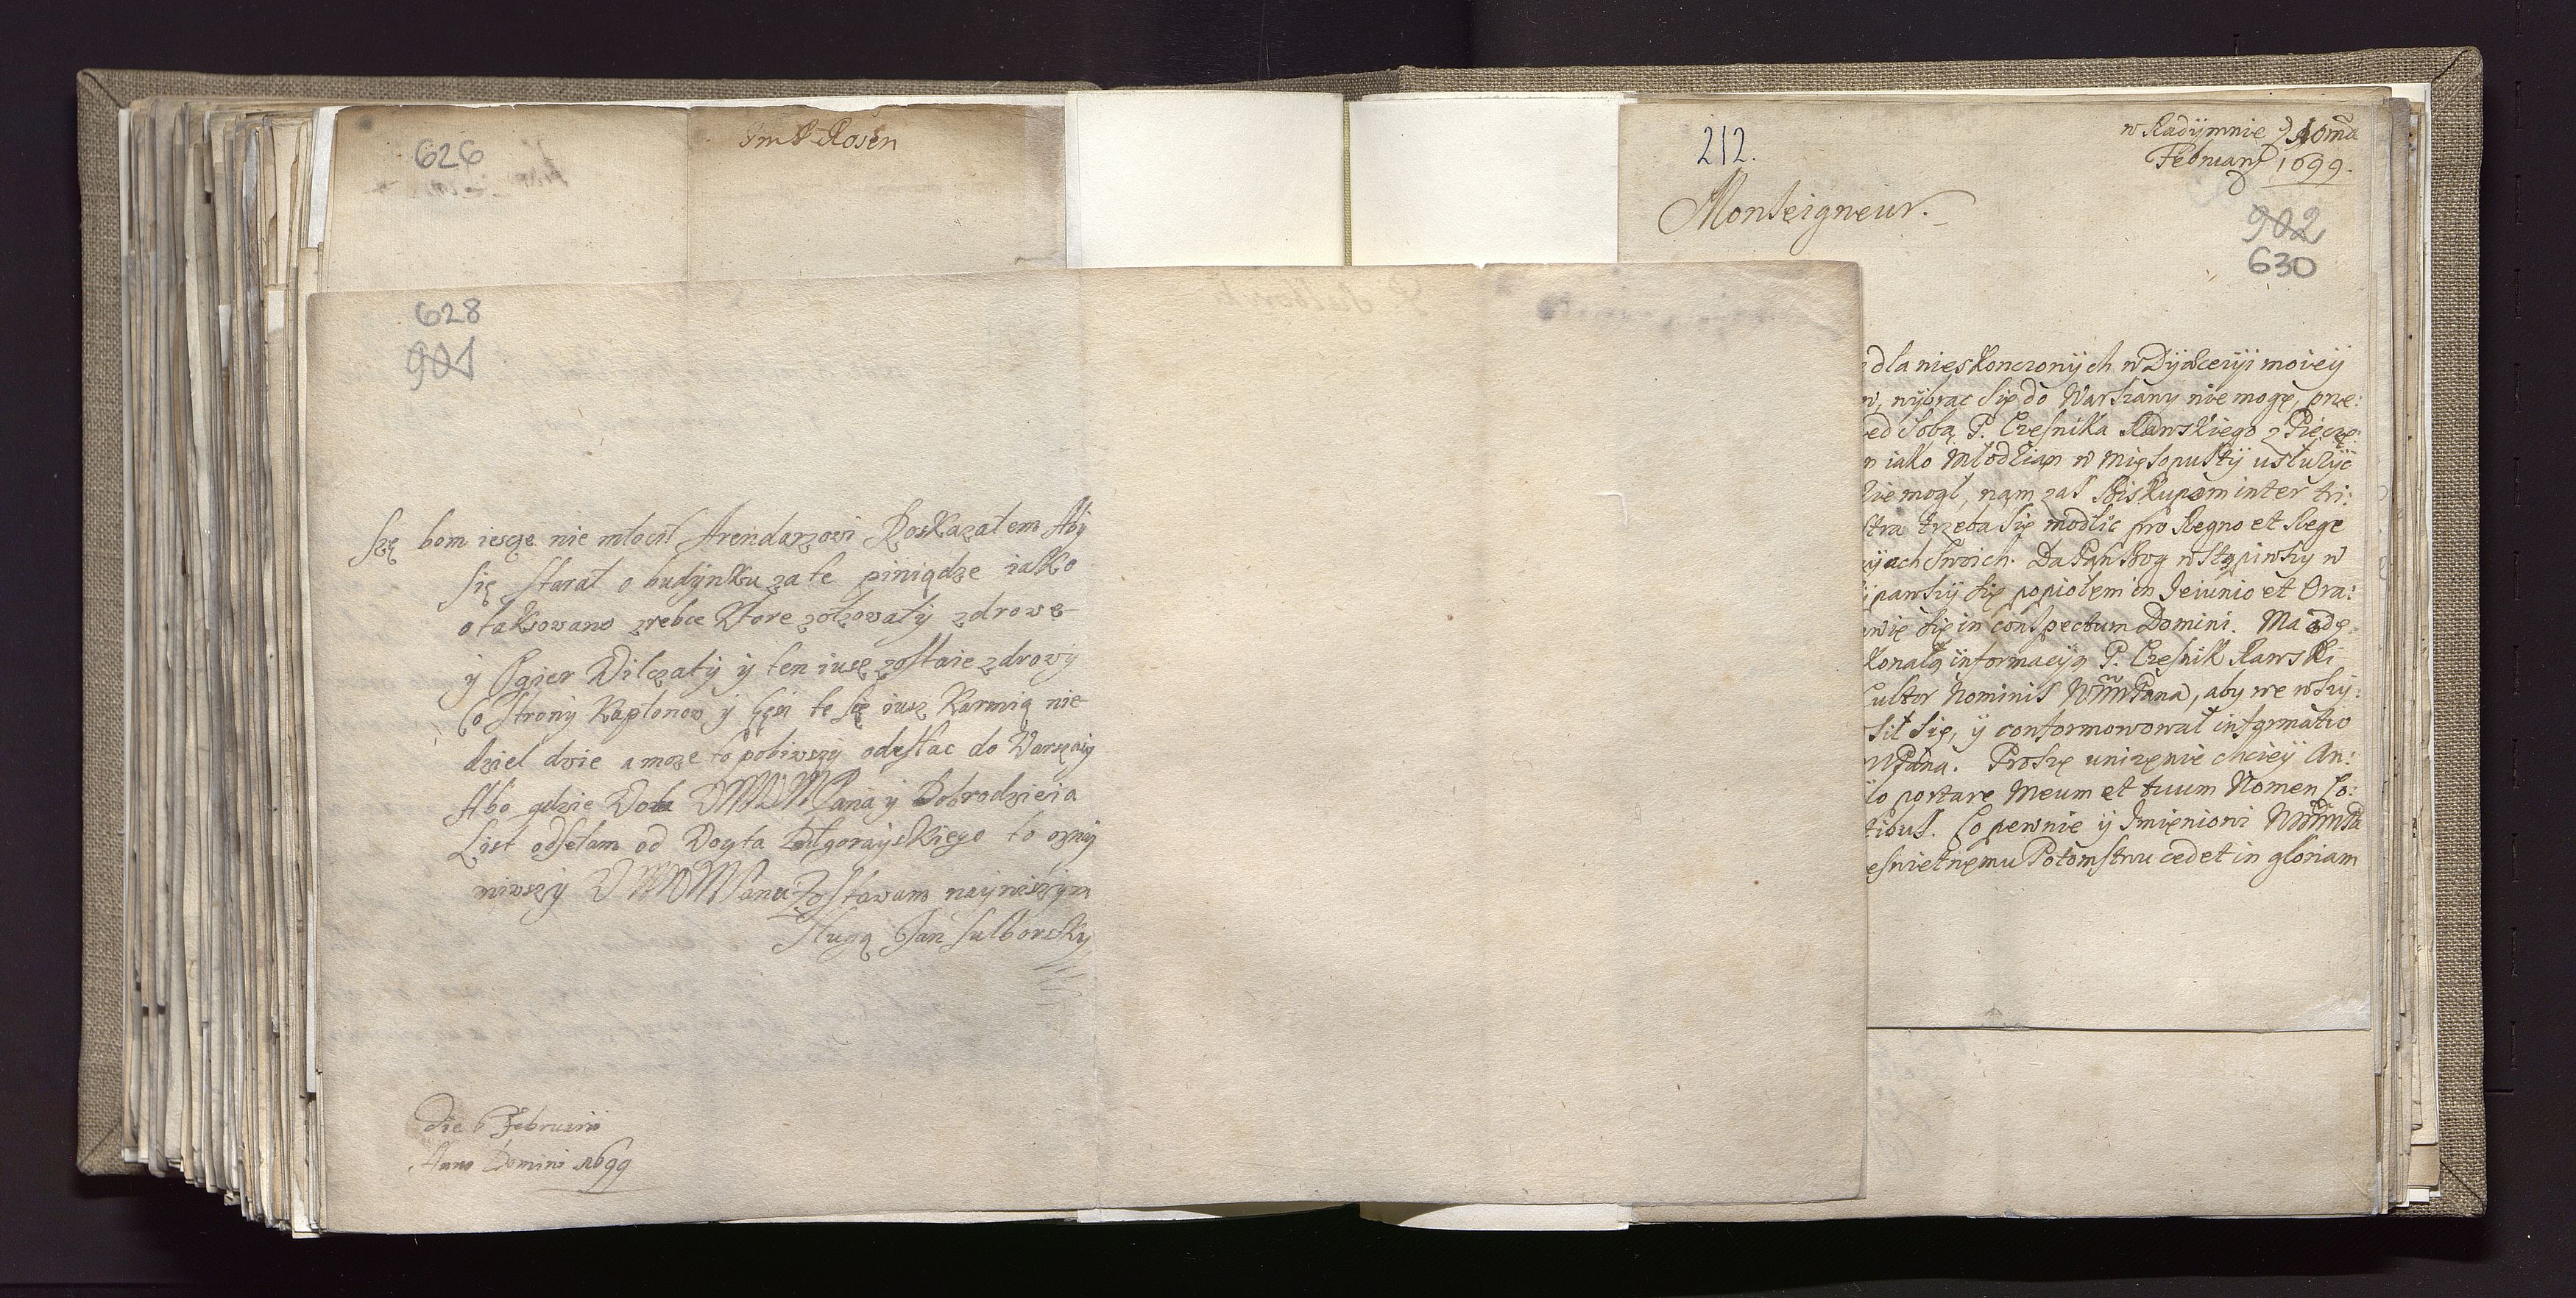 626
Im P Rosen
628
901
szę bom iescze nie młocił Arendarzowi Roskazałem Aby
się starał o budynku za te piniądze iako
otaksowano zrebce Ktore zołzowały zdrowe
y Ogier Wilczaty y ten iusz zostaie zdrowy
Co strony Kapłonow y Gęsi te się iusz Karmią nie
dziel dwie a moze to pobiwszy odesłac do Warszawy
Abo gdzie Wola WMMMPana y Dobrodzieia
List odsełam od Woyta Bilgorayskiego to ozny
miwszy WMMMPanu Zostawam nayniszym
sługą Jan Sulborsky
Die 6 Februarii
Anno Domini 1699
212.
w Radymnie 2 10ma
Februarij 1699.
902
630
Monseigneur.
dla nieskonczonych w Dyæceyi moiey
w, wybrac się do Warszawy nie mogę, prze:
ed sobą P. Czesnika Rawskiego z Pieczę:
n iako Młodzian w Mięsopusty usłuzyc
zie mogł, nam zas Biskupom inter tri:
stia trzeba się modlic pro Regno et Rege
yach swoich. Da Pan Bog wstąpiwszy w
ypawszy się popiołem in Jeiunio et Ora:
wię się in conspectum Domini. Ma odę
konałą informacyą P. Czesnik Rawski
Cultor Nominis WMMPana, aby we wszy:
sił się, y conformowował informatio
WPana. Proszę unizenie chciey An:
lo portare Meum et tuum Nomen Co:
tibus. Co pewnie y Imięniowi WMMPa
eswietnemu Potomstwu cedet in gloriam